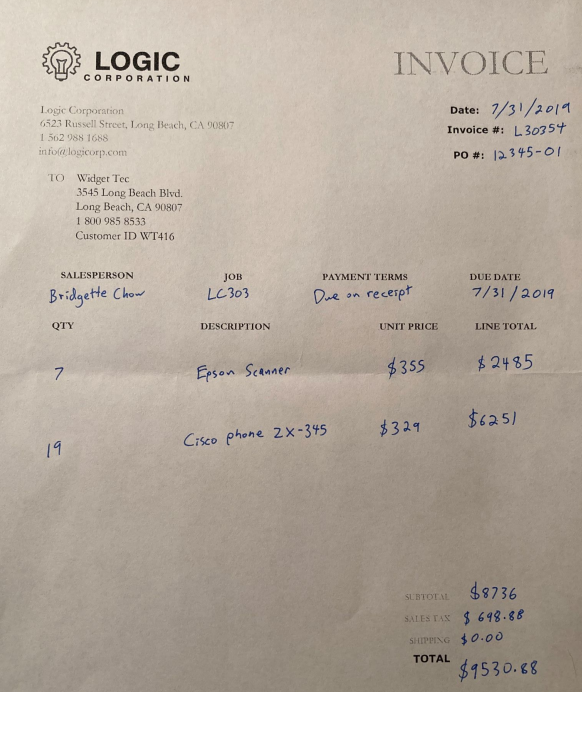 LOGIC
CORPORATION
INVOICE
Logic Corporation
6523 Russell Street, Long Beach, CA 90807
1 562 988 1688
info@logicorp.com
Date: 7/31/2019
Invoice #: L30354
PO #: 12345-01
TO Widget Tec
3545 Long Beach Blvd.
Long Beach, CA 90807
1 800 985 8533
Customer ID WT416
SALESPERSON JOB PAYMENT TERMS DUE DATE
Bridgette Chow LC303 Due on receipt 7/31/2019
QTY DESCRIPTION UNIT PRICE LINE TOTAL
7 Epson Scanner $355 $2485
19 Cisco phone ZX-345 $329 $6251
SUBTOTAL $8736
SALES TAX $698.88
SHIPPING $0.00
TOTAL $9530.88